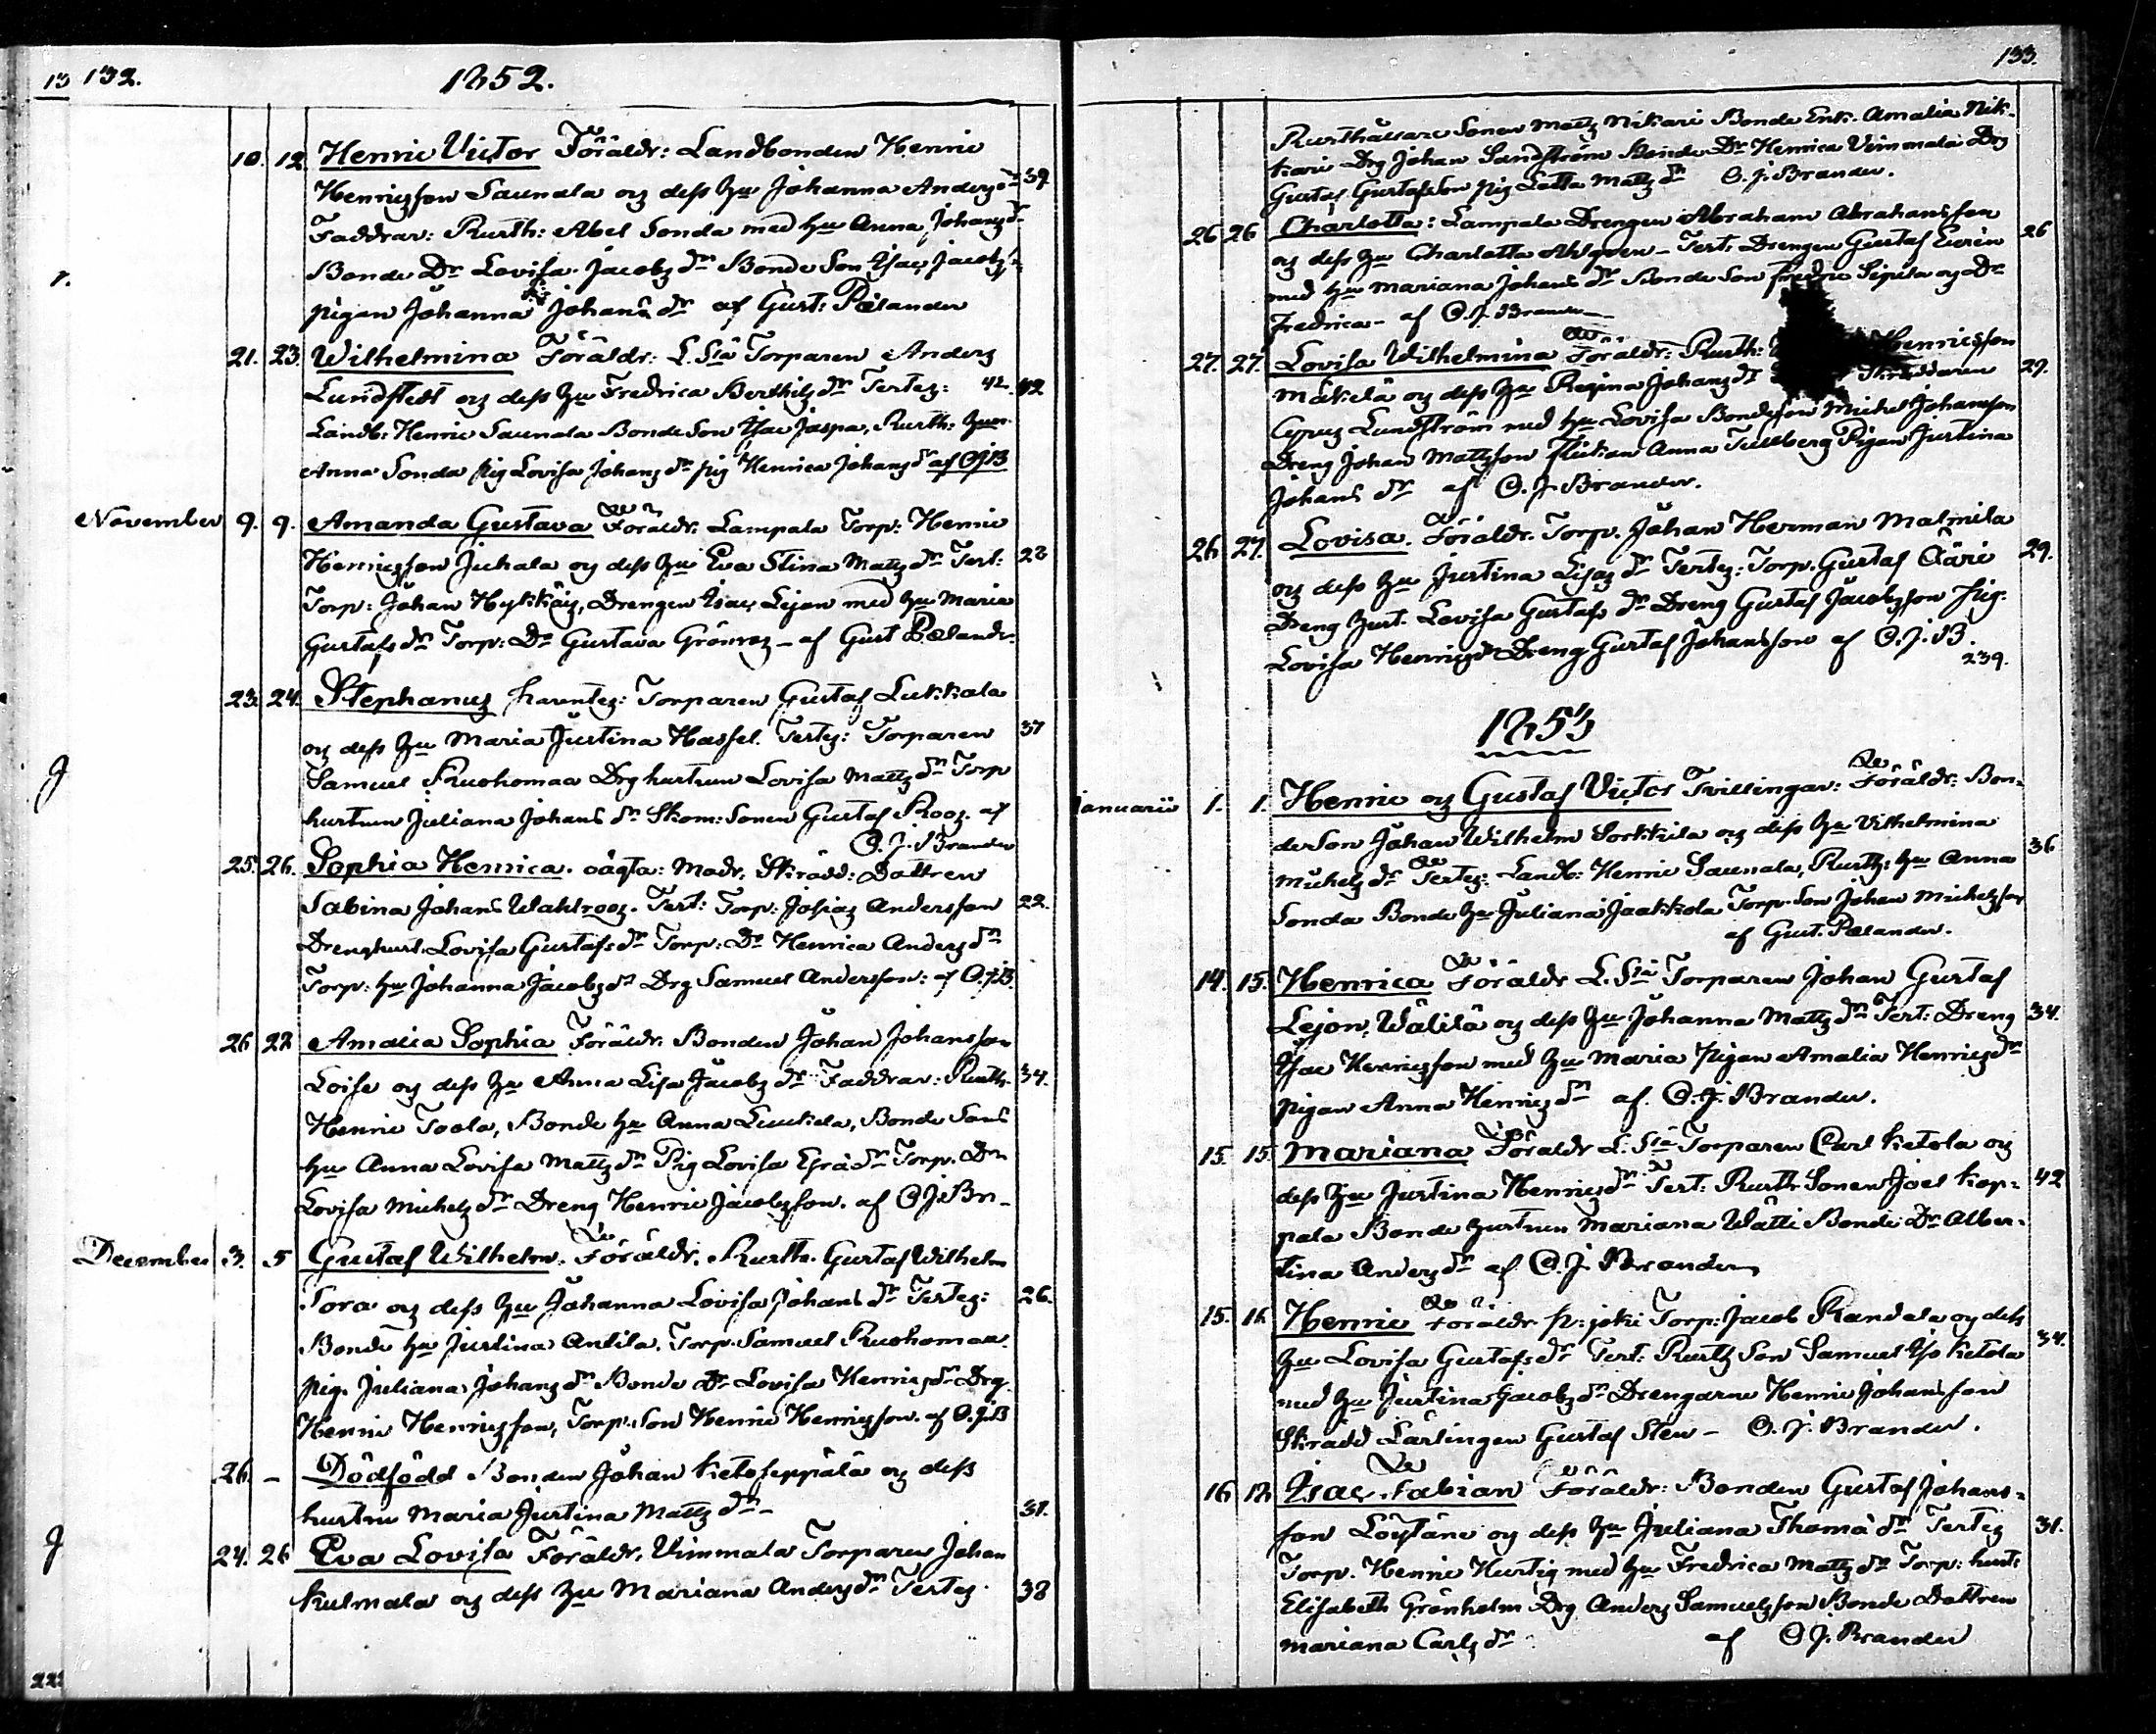 13 132. 1852.
10. 12. Henric Victor Föräldr: Landbonden Henric
Henricsson Saunala og dess Hu Johanna Anders dr 39.
Faddrar: Rusth: Abel Sonda med hu Anna Johans dr
Bonde Dr Lovisa Jacobs dr Bonde Son Isac Jacobs
pigan Johanna Johans dr af Gust: Pælander
21. 23. Wilhelmina Föräldr: L. Sta Torparen Anders
Lundstedt og dess Hu Fredrica Berthils dr Testes: 42. 42
Landb: Henric Saunala Bonde Son Isac Jaspa, Rusth: Hun
Anna Sonda pig Lovisa Johans dr pig Henrica Johans dr af OJB
November 9. 9. Amanda Gustava Föräldr. Lampala Torp: Henric
Henricsson Juhala og dess Hu Eva Stina Matts dr Test: 28
Torp: Johan Hyrkkäs, Drengen Isac Lejon med Hu Maria
Gustafs dr Torp: Dr Gustava Grönroos – af Gust Pælander
23. 24. Stephanus parentes: Torparen Gustaf Lukkala
og dess Hu Maria Justina Hassel. Testes: Torparen 37
Samuel Ruohomaa Drg hustrun Lovisa Matts dr Torp
hustrun Juliana Johans dr Skom: Sonen Gustaf Roos. af
O. J. Brander
25. 26. Sophia Henrica. oägta: Modr. Skrädd: Dottren
Sabina Johans Wahlroos. Test: Torp: Josias Andersson 22.
Drenghust. Lovisa Gustafs dr Torp: Dr Henrica Anders dr
Torp: hu Johanna Jacobs dr Drg Samuel Andersson: af O.J.B.
26 28 Amalia Sophia Föräldr. Bonden Johan Johansson
Loise og dess Hu Anna Lisa Jacobs dr Faddrar: Rusth. 34.
Henric Toola, Bonde hu Anna Luukela, Bonde Sons
hu Anna Lovisa Matts dr Pig Lovisa Esrä dr Torp. Dr
Lovisa Michels dr Dreng Henric Jacobsson. af O J. Br –
December 3. 5 Gustaf Wilhelm. Föräldr. Rusth. Gustaf Wilhelm
Tora og dess Hu Johanna Lovisa Johans dr Testes: 26.
Bonde hu Justina Antila. Torp. Samuel Ruohomaa.
pig. Juliana Johans dr Bonde Dr Lovisa Henrics dr Drg.
Henric Henricsson, Torp. Son Henric Henricsson. af O.J.B
26. – Dödfödd Bonden Johan Ketoseppälä og dess
hustru Maria Justina Matts dr – 31.
24. 26 Eva Lovisa Föräldr. Vimmala Torparen Johan
Kulmala og dess Hu Mariana Anders dr Testes. 38
133.
Rusthållare Sonen Matts Nikari Bonde Enk. Amalia Nik-
kari Drg Johan Sandström Bonde Dr Henrica Vimmala Drg
Gustaf Gustafsson pig Lotta Matts dr O. J. Brander.
26 26 Charlotta: Lampala Drengen Abraham Abrahamsson 26
og dess Hu Charlotta Ahlgren – Test: Drengen Gustaf Euren
med hu Mariana Johans dr Bonde Son Fredric Sipila og Dr
Fredrica – af O. J. Brander
27. 27. Lovisa Wilhelmina Föräldr: Rusth: Henricsson
Mäkelä og dess Hu Regina Johans dr Skräddaren 29.
Cyrus Lundström med hu Lovisa Bondeson Michel Johansson
Dreng Johan Mattsson flickan Anna Tullberg Pigan Justina
Johans dr af O. J. Brander.
26. 27. Lovisa. Föräldr. Torp. Johan Herman Malmila
og dess Hu Justina Lisas dr Testes: Torp. Gustaf Ääri 29.
Dreng Hust. Lovisa Gustafs dr Dreng Gustaf Jacobsson pig.
Lovisa Henrics dr Dreng Gustaf Johansson af O. J. B.
239.
1853
Januarii 1. 1. Henric og Gustaf Victor Tvillingar: Föräldr: Bon-
de Son Johan Wilhelm Sorkkila og dess Hu Vilhelmina
Michels dr Testes: Landb: Henric Saunala, Rusth: hu Anna 36
Sonda Bonde Hu Juliana Jaakkola Torp. Son Johan Michelsson
af Gust. Pælander.
14. 15. Henrica Föräldr L. Sta Torparen Johan Gustaf
Lejon, Wälilä og dess Hu Johanna Matts dr Test: Dreng 34.
Isac Henricsson med Hu Maria pigan Amalia Henrics dr
pigan Anna Henrics dr af. O. J. Brander.
15. 15. Mariana Föräldr L. Sta Torparen Carl Ketola og
dess Hu Justina Henrics dr Test: Rusth Sonen Joel Kop- 42
pala Bonde Hustrun Mariana Wätti Bonde Dr Alber-
tina Anders dr af O. J. Brander
15. 16. Henric Föräldr. P: joki Torp: Jacob Randala og dess
Hu Lovisa Gustafs dr Test: Rusth Son Samuel Iso Ketola 34.
med Hu Justina Jacobs dr Drengarne Henric Johansson
Skrädd Lärlingen Gustaf Sten – O. J. Brander.
16 18 Isac Fabian Föräldr: Bonden Gustaf Johans-
son Löytäne og dess Hu Juliana Thomä dr Testes 31.
Torp. Henric Hurtig med Hu Fredrica Matts dr Torp: hust:
Elisabeth Grönholm Drg Anders Samuelsson Bonde Dottren
Mariana Carls dr af O J. Brander